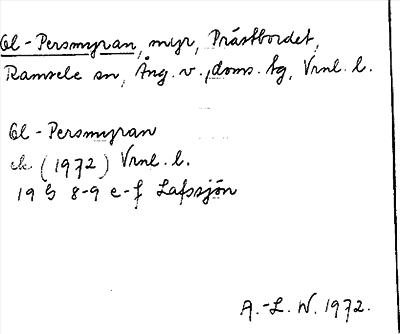 Öl-Persmyran, myr, Prästbordet,
Ramsele sn, Ång. v., doms. tg, Vrnl. l.
Öl-Persmyran
ek (1972) Vrnl. l.
19 G 8-9 e-f Lafssjön
A.-L. W. 1972.